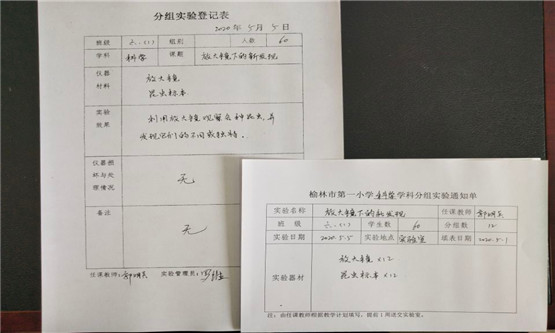 分组实验登记表
2020年5月5日
班级 六.(1) 组别 人数 60
学科 科学 课题 放大镜下的新发现
仪器材料
放大镜
昆虫标本
实验效果
利用放大镜观察各种昆虫,并
发现它们的不同或独特。
仪器损坏与处理情况 无
备注 无
任课教师: 实验管理员:
榆林市第一小学科学学科分组实验通知单
实验名称 放大镜下的新发现 任课教师
班级 六.(1) 学生数 60 分组数 12
实验日期 2020.5.5 实验地点 实验室 填表日期 2020.5.1
实验器材
放大镜 ×12
昆虫标本 ×12
注:由任课教师根据教学计划填写,提前1周送交实验室。